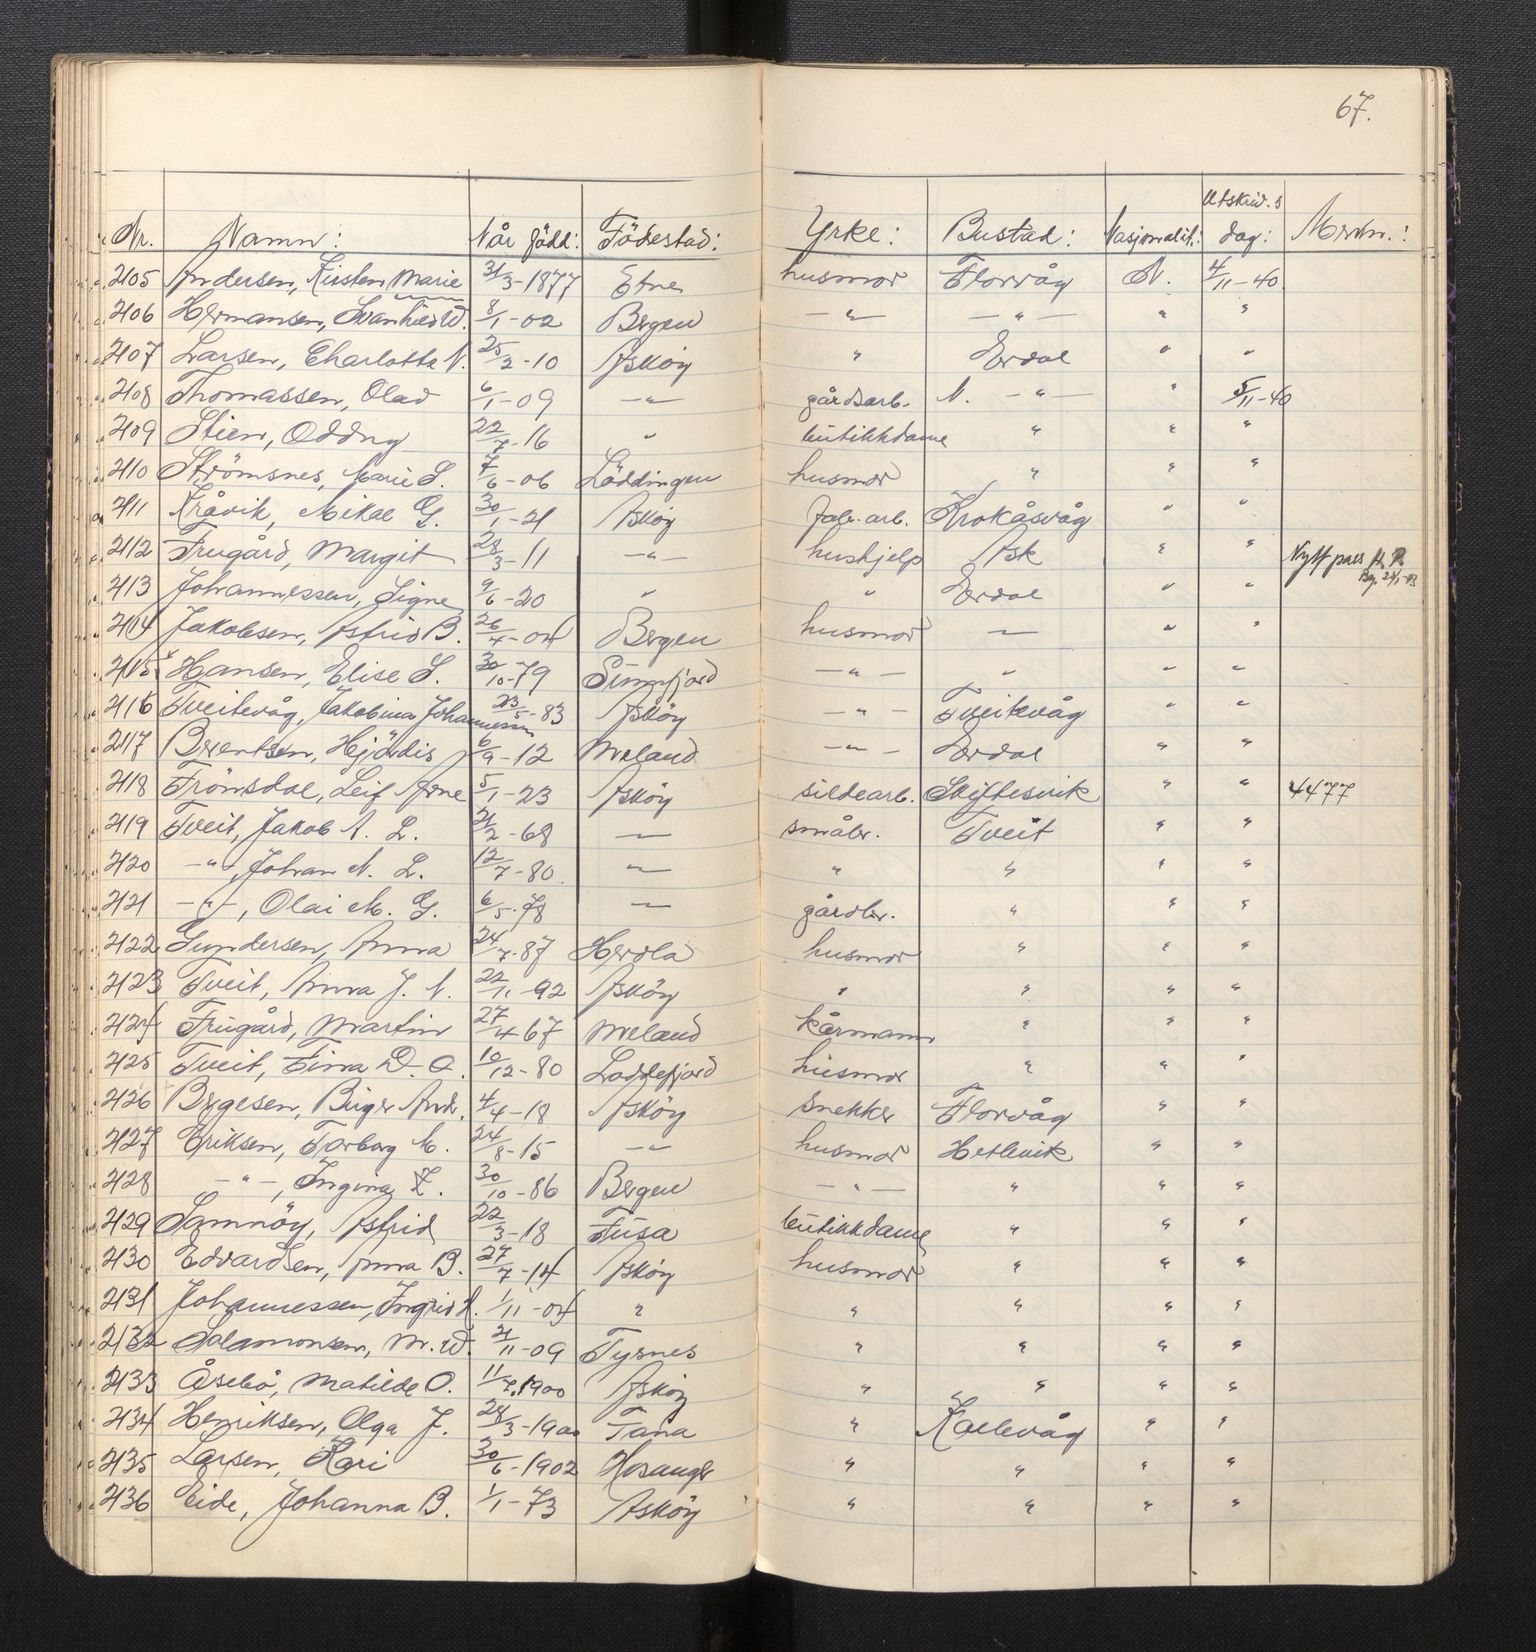 67.
Nr. Namn: Når født: Födestad: Yrke: Bustad: Nasjonalit.: Utskriv.s dag: Merkn.:
2105 Andersen, Kirsten Marie 31/3-1877 Etne husmor Florvåg N. 4/11-40.
2106 Hermansen, Svanhild W. 8/1-02 Bergen —"— —"— " "
2107 Larsen, Charlotte N. 25/2-10 Asköy " Erdal " "
2108 Thomassen, Olav 6/1-09 —"— gårdsarb. N. —"— " 5/11-40
2109 Stien, Oddny 22/7-16 " butikkdame " " "
2110 Strömsnes, Marie S. 7/6-06 Löddingen husmor " " "
2111 Kråvik, Mikal G. 30/1-21 Asköy fabr.arb. Krokåsvåg " "
2112 Frugård, Margit 28/3-11 —"— hushjelp Ask " " Nytt pass
2113 Johannessen, Signe 9/6-20 " " Erdal " "
2114 Jakobsen, Astrid B. 26/4-04 Bergen husmor — " "
2115 Hansen, Elise S. 30/10-79 Sunnfjord —"— " " "
2116 Tveitevåg, Jakobina Johannessen 23/5-83 Asköy —"— Tveitevåg " "
2117 Berentsen, Hjördis 6/9-12 Meland —"— Erdal " "
2118 Frömsdal, Leif Arne 5/1-23 Asköy sildearb. Skiftesvik " " 4477
2119 Tveit, Jakob A. L. 21/2-68 — småbr. Tveit " "
2120 —"—, Johan N. L. 12/7-80. — " " " "
2121 —"—, Olai M. G. 6/5-78 — gårdbr. " " "
2122 Gundersen, Anna 24/7-87 Herdla husmor " " "
2123 Tveit, Anna J. N. 22/11-92 Asköy " " " "
2124 Frugård, Martin 27/4 67 Meland kårmann " " "
2125 Tveit, Fina D. O. 10/12-80 Loddefjord husmor " " "
2126 Bergesen, Birger Andr. 4/4-18 Asköy snekker Florvåg " "
2127 Eriksen, Torborg M. 24/8-15 —"— husmor Hetlevik " "
2128 —"—, Ingina Z. 30/10-86 Bergen —"— " " "
2129 Samnöy, Astrid 22/3-18 Fusa butikkdame " " "
2130 Edvardsen, Anna B. 27/7-14 Asköy husmor " " "
2131 Johannessen, Ingrid H. 1/11-04 " " " " "
2132 Salamonsen, M. W. 21/11-09 Tysnes " " " "
2133 Åsebö, Matilde O. 11/7.1900 Asköy " " " "
2134 Henriksen, Olga J. 28/3-1900 Tana " Kollevåg " "
2135 Larsen, Kari 30/6-1902 Hosanger " " " "
2136 Eide, Johanna B. 1/1-73 Asköy " " " "